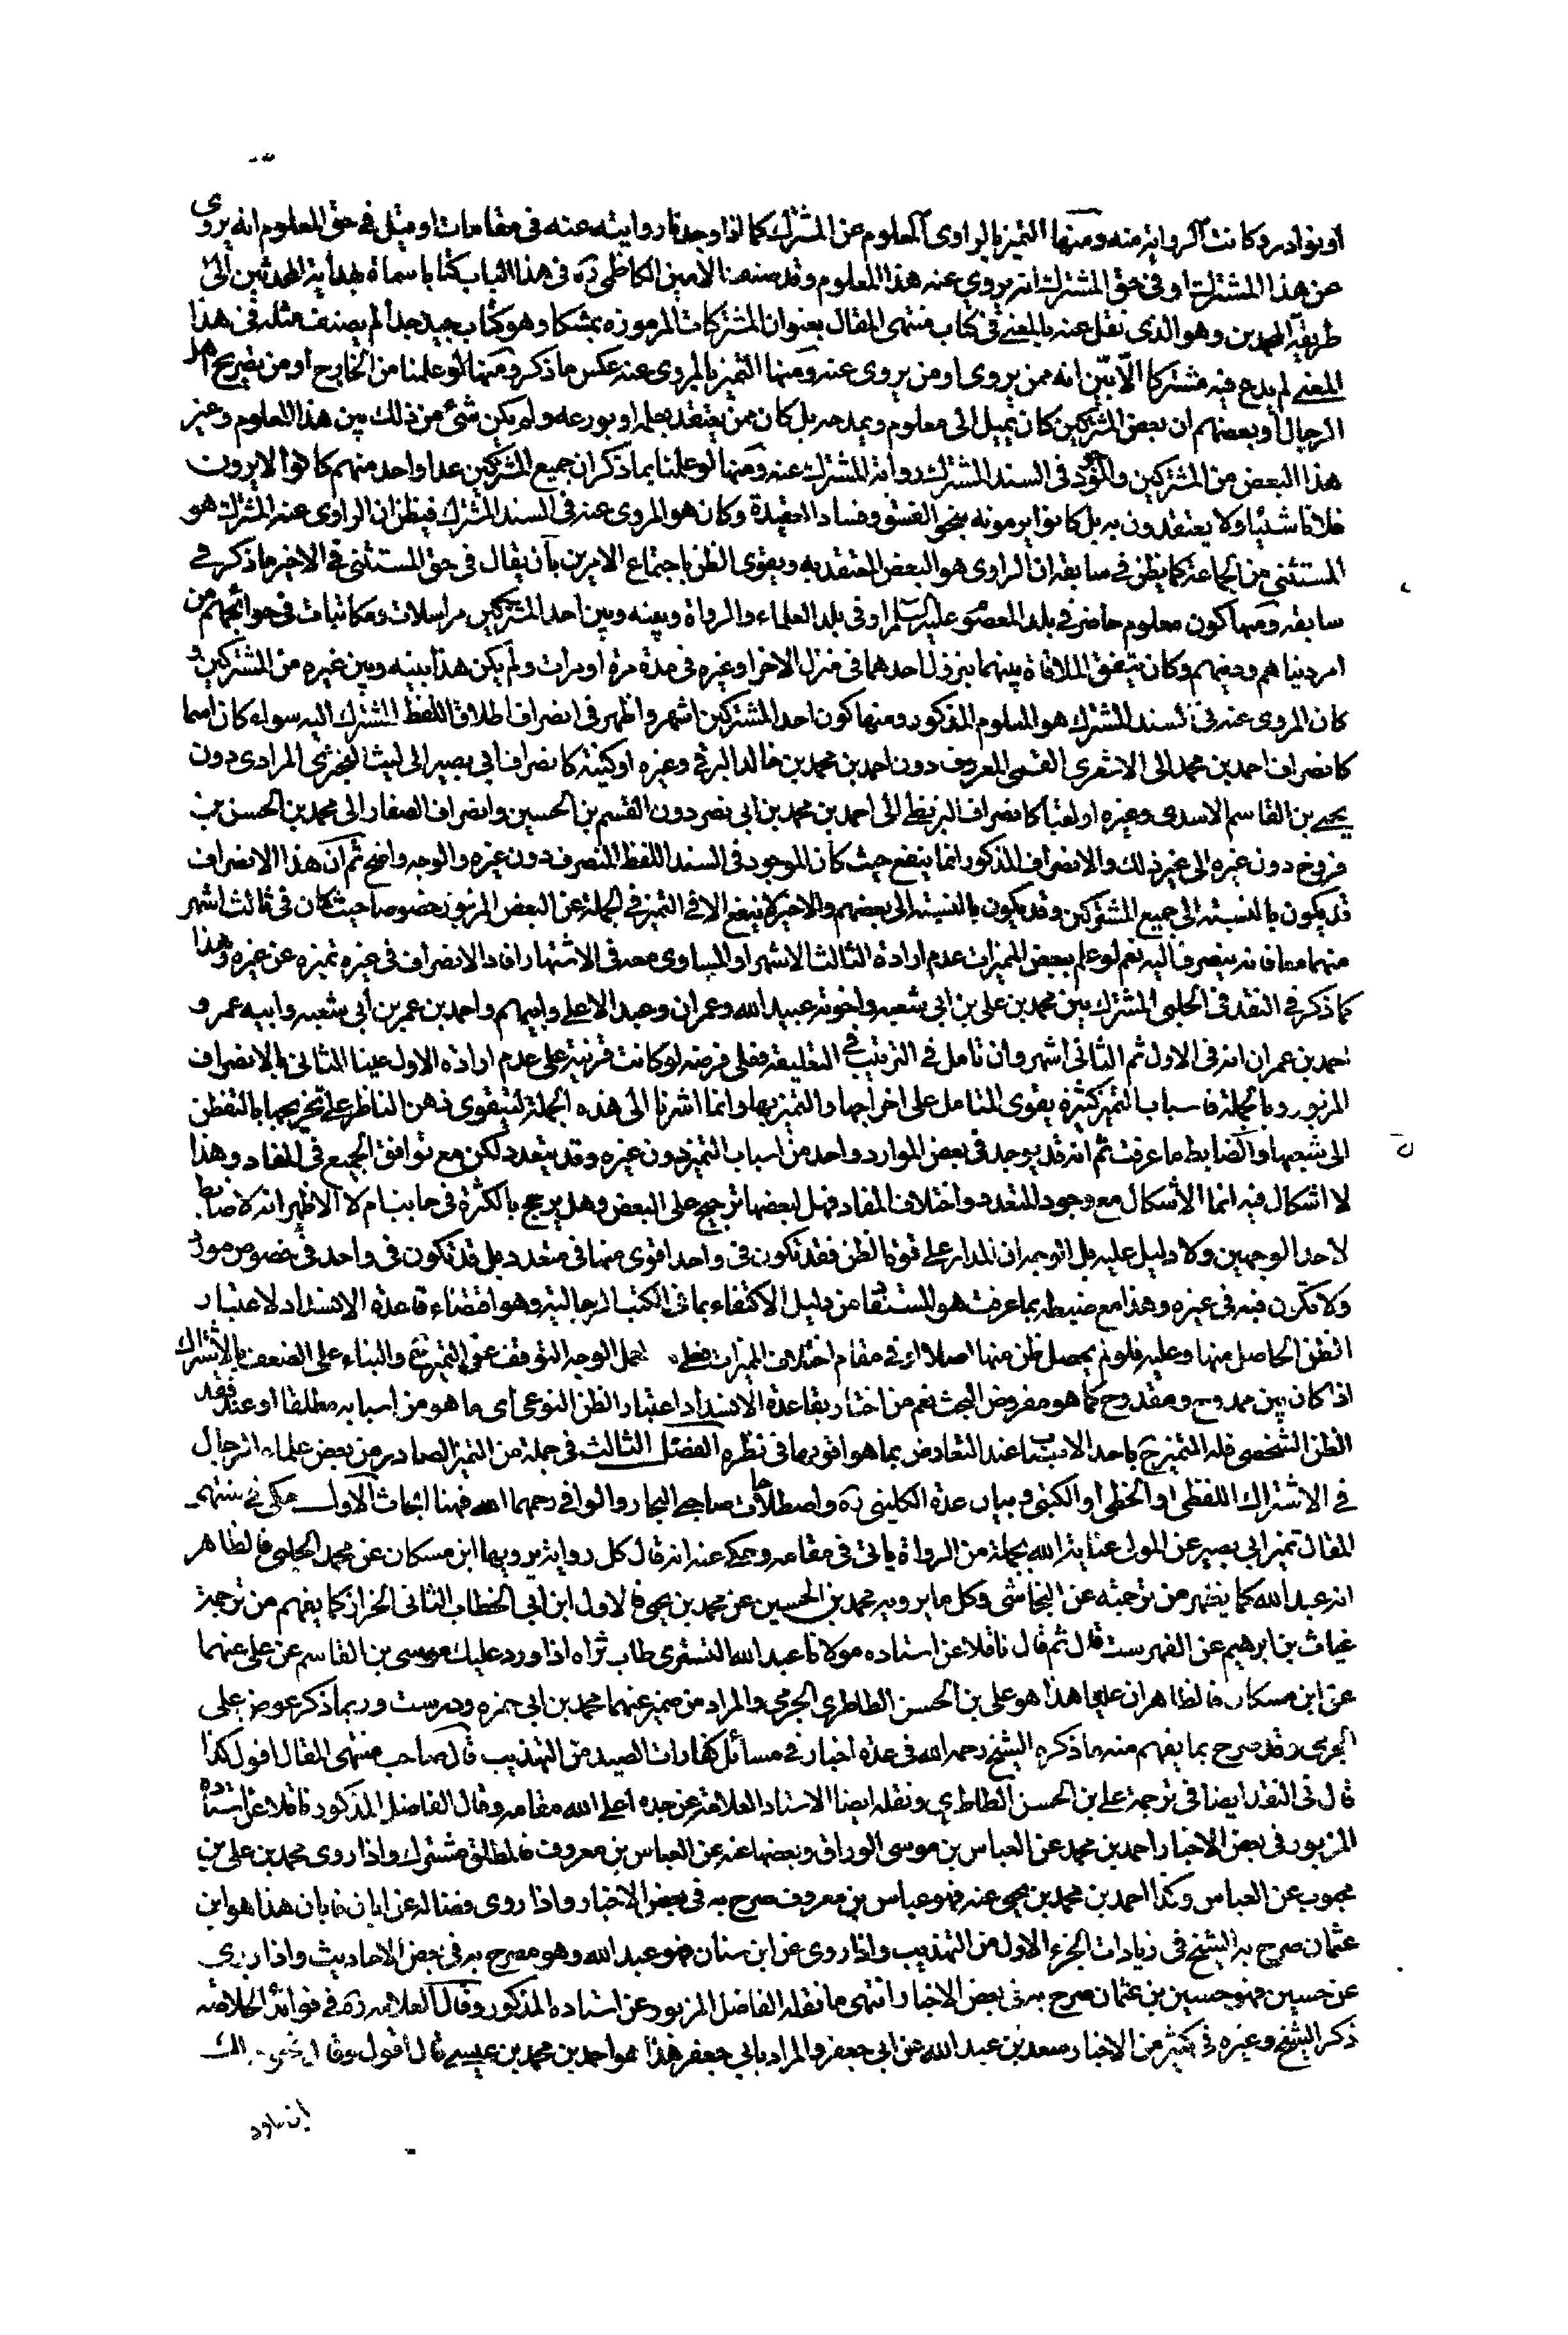 او نوادره كانت الرواية منه ومنها التميز بالراوى المعلوم عن المشترك كما اذا وجدنا روايته عنه فى مقامات او قيل فى حق المعلوم انه يروى
عن هذا المشترك او فى حق المشترك انه يروى عنه هذا المعلوم وقد صنف الامين الكاظمى ره فى هذا الباب كتابا سماه بهداية المحدثين الى
طريقة المحمدين وهو الذى نقل عنه بالمعنى فى كتاب منتهى المقال بعنوان المشتركات المرموزه بمشكا وهو كتاب جيد جدا لم يصنف مثله فى هذا
المعنى لم يدع فيه مشتركا الا بين انه ممن يروى او من يروى عنه ومنها التميز بالمروى عنه عكس ما ذكر ومنها لو علمنا من الخارج او من تصريح اهل
الرجال او بعضهم ان بعض المشتركين كان يميل الى معلوم ويمدحه بل كان ممن يعتقد بعلمه او بورعه ولم يكن شئ من ذلك بين هذا المعلوم وغير
هذا البعض من المشتركين والموجود فى السند المشترك رواية المشترك عنه ومنها لو علمنا بما ذكر ان جميع المشتركين عدا واحد منهم كانوا لا يرون
فلانا شيئا ولا يعتقدون به بل كانوا يرمونه بنحو الفسق وفساد العقيدة وكان هو المروى عنه فى السند المشترك فيظن ان الراوى عنه المشترك هو
المستثنى من الجماعة كما يظن فى سابقه ان الراوى هو البعض المعتقد به ويقوى الظن باجتماع الامرين بان يقال فى حق المستثنى فى الاخير ما ذكر فى
سابقه ومنها كون معلوم حاضر فى بلد المعصوم عليه السلام او فى بلد العلماء والرواة وبينه وبين احد المشتركين مراسلات ومكاتبات فى حوائجهم من
امر دنياهم ودينهم وكان يتفق الملاقاة بينهما بنزول احدهما فى منزل الاخر او غيره فى مدة مرة او مرات ولم يكن هذا بينه وبين غيره من المشتركين و
كان المروى عنه فى السند المشترك هو المعلوم المذكور ومنها كون احد المشتركين اشهر واظهر فى انصراف اطلاق اللفظ المشترك اليه سواء كان اسما
كانصراف احمد بن محمد الى الاشعرى القمى المعروف دون احمد بن محمد بن خالد البرقى وغيره او كنية كانصراف ابى بصير الى ليث البخترى المرادى دون
يحيى بن القاسم الاسدى وغيره او لقبا كانصراف البزنطى الى احمد بن محمد بن ابى نصر دون القسم بن الحسين وانصراف الصفار الى محمد بن الحسن بن
فروخ دون غيره الى غير ذلك والانصراف المذكور انما ينفع حيث كان الموجود فى السند اللفظ المنصرف دون غيره والوجه واضح ثم ان هذا الانصراف
قد يكون بالنسبة الى جميع المشتركين وقد يكون بالنسبة الى بعضهم والاخير لا ينفع الا فى التميز فى الجملة عن البعض المزبور خصوصا حيث كان فى ثالث اشهر
منهما معا فانه ينصرف اليه نعم لو علم ببعض المميزات عدم ارادة الثالث الاشهر او المساوى معه فى الاشتهار افاد الانصراف فى غيره تميزه عن غيره وهذا
كما ذكر فى النقد فى الحلبى المشترك بين محمد بن على بن ابى شعبه واخوته عبيد الله وعمران وعبد الاعلى وابيهم واحمد بن عمر بن ابى شعبه وابيه عمر و
احمد بن عمران انه فى الاول ثم الثانى اشهر وان تامل فى الترتيب فى التعليقه فعلى فرضه لو كانت قرنية على عدم اراده الاول عينا الثانى بالانصراف
المزبور وبالجملة فاسباب التميز كثيرة يقوى المتامل على اخراجها والتميز بها وانما اشرنا الى هذه الجملة ليتقوى ذهن الناظر على تخريجها بالتفطن
الى شعبها والضابط ما عرفت ثم انه قد يوجد فى بعض الموارد واحد من اسباب التميز دون غيره وقد يتعدد لكن مع توافق الجميع فى المفاد وهذا
لا اشكال فيه انما الاشكال مع وجود المتعدد واختلاف المفاد فهل لبعضها ترجيح على البعض وهل يرجح بالكثرة فى جانب ام لا الاظهر انه لا ضابط
لاحد الوجهين ولا دليل عليه بل الوجه ان المدار على قوة الظن فقد تكون فى واحد اقوى منها فى متعدد بل قد تكون فى واحد فى خصوص مورد
ولا تكون فيه فى غيره وهذا مع ضبطه بما عرفت هو المستفاد من دليل الاكتفاء بما فى الكتب الرجالية وهو اقتضاء قاعدة الانسداد لاعتبار
الظن الحاصل منها وعليه فلو لم يحصل ظن منها اصلا او فى مقام اختلاف المميزات فظ لعل الوجه التوقف عن التميز والبناء على الضعف بالاشتراك
اذا كان بين ممدوح ومقدوح كما هو مفروض البحث نعم من اختار بقاعدة الانسداد اعتبار الظن النوعى اى ما هو من اسبابه مطلقا او عند فقد
الظن الشخصى فله التميز ح باحد الاسباب عند التعارض بما هو اقويها فى نظره الفصل الثالث فى جملة من التميز الصادر من بعض علماء الرجال
فى الاشتراك اللفظى او الخطى او الكتبى وبيان عدة الكلينى ره واصطلاحات صاحبى البحار والوافى رحمهما الله فهنا ابحاث الاول حكى فى منتهى
المقال تميز ابى بصير عن المولى عناية الله بجملة من الرواة ياتى فى مقامه وحكى عنه انه قال كل رواية يرويها ابن مسكان عن محمد الحلبى فالظاهر
انه عبد الله كما يظهر من ترجمته عن النجاشى وكل ما يرويه محمد بن الحسين عن محمد بن يحيى فالاول ابن ابى الخطاب الثانى الخزاز كما يفهم من ترجمة
غياث بن ابرهيم عن الفهرست قال ثم قال ناقلا عن استاده مولانا عبد الله التسترى طاب ثراه اذا ورد عليك موسى بن القاسم عن على عنهما
عن ابن مسكان فالظاهر ان عليا هذا هو على بن الحسن الطاطرى الجرمى والمراد من ضمير عنهما محمد بن ابى حمزه ودرست وربما ذكر عوض على
الجرمى وقد صرح بما يفهم منه ما ذكره الشيخ رحمه الله فى عدة اخبار فى مسائل كفارات الصيد من التهذيب قال صاحب منتهى المقال اقول كذا
قال فى النقد ايضا فى ترجمة على بن الحسن الطاطرى ونقله ايضا الاستاد العلامة عن جده اعلى الله مقامه وقال الفاضل المذكور ناقلا عن استاده
المزبور فى بعض الاخبار احمد بن محمد عن العباس بن موسى الوراق وبعضها عنه عن العباس بن معروف فالمطلق مشترك واذا روى محمد بن على بن
محبوب عن العباس وكذا احمد بن محمد بن يحيى عنه فهو عباس بن معروف صرح به فى بعض الاخبار واذا روى فضاله عن ابان فابان هذا هو ابن
عثمان صرح به الشيخ فى زيادات الجزء الاول من التهذيب واذا روى عن ابن سنان فهو عبد الله وهو مصرح به فى بعض الاحاديث واذا روى
عن حسين فهو حسين بن عثمان صرح به فى بعض الاخبار انتهى ما نقله الفاضل المزبور عن استاده المذكور وقال العلامه ره فى فوائد الخلاصه
ذكر الشيخ وغيره فى كثير من الاخبار سعد بن عبد الله عن ابى جعفر والمراد بابى جعفر هذا هو احمد بن محمد بن عيسى قال اقول وقال